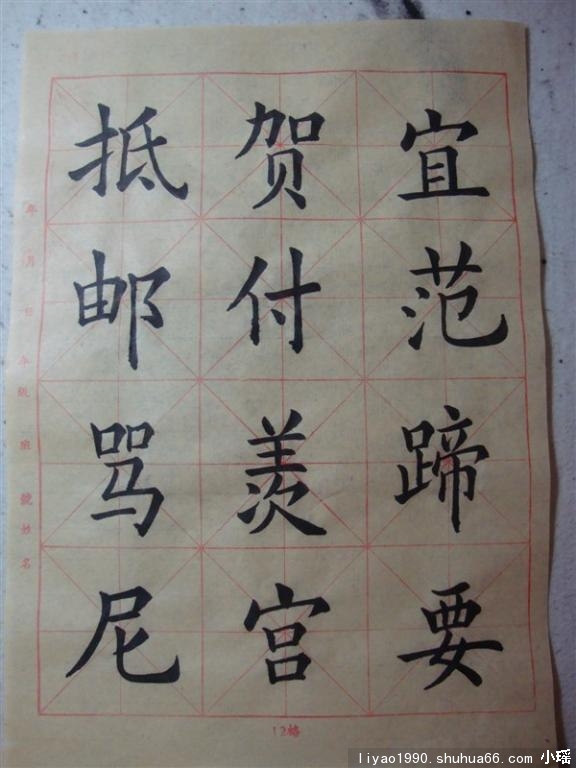 宜范蹄要
贺付羡宫
抵邮骂尼
年 月 日 年级 班 号 姓名
12格
liyao1990.shuhua66.com 小瑶